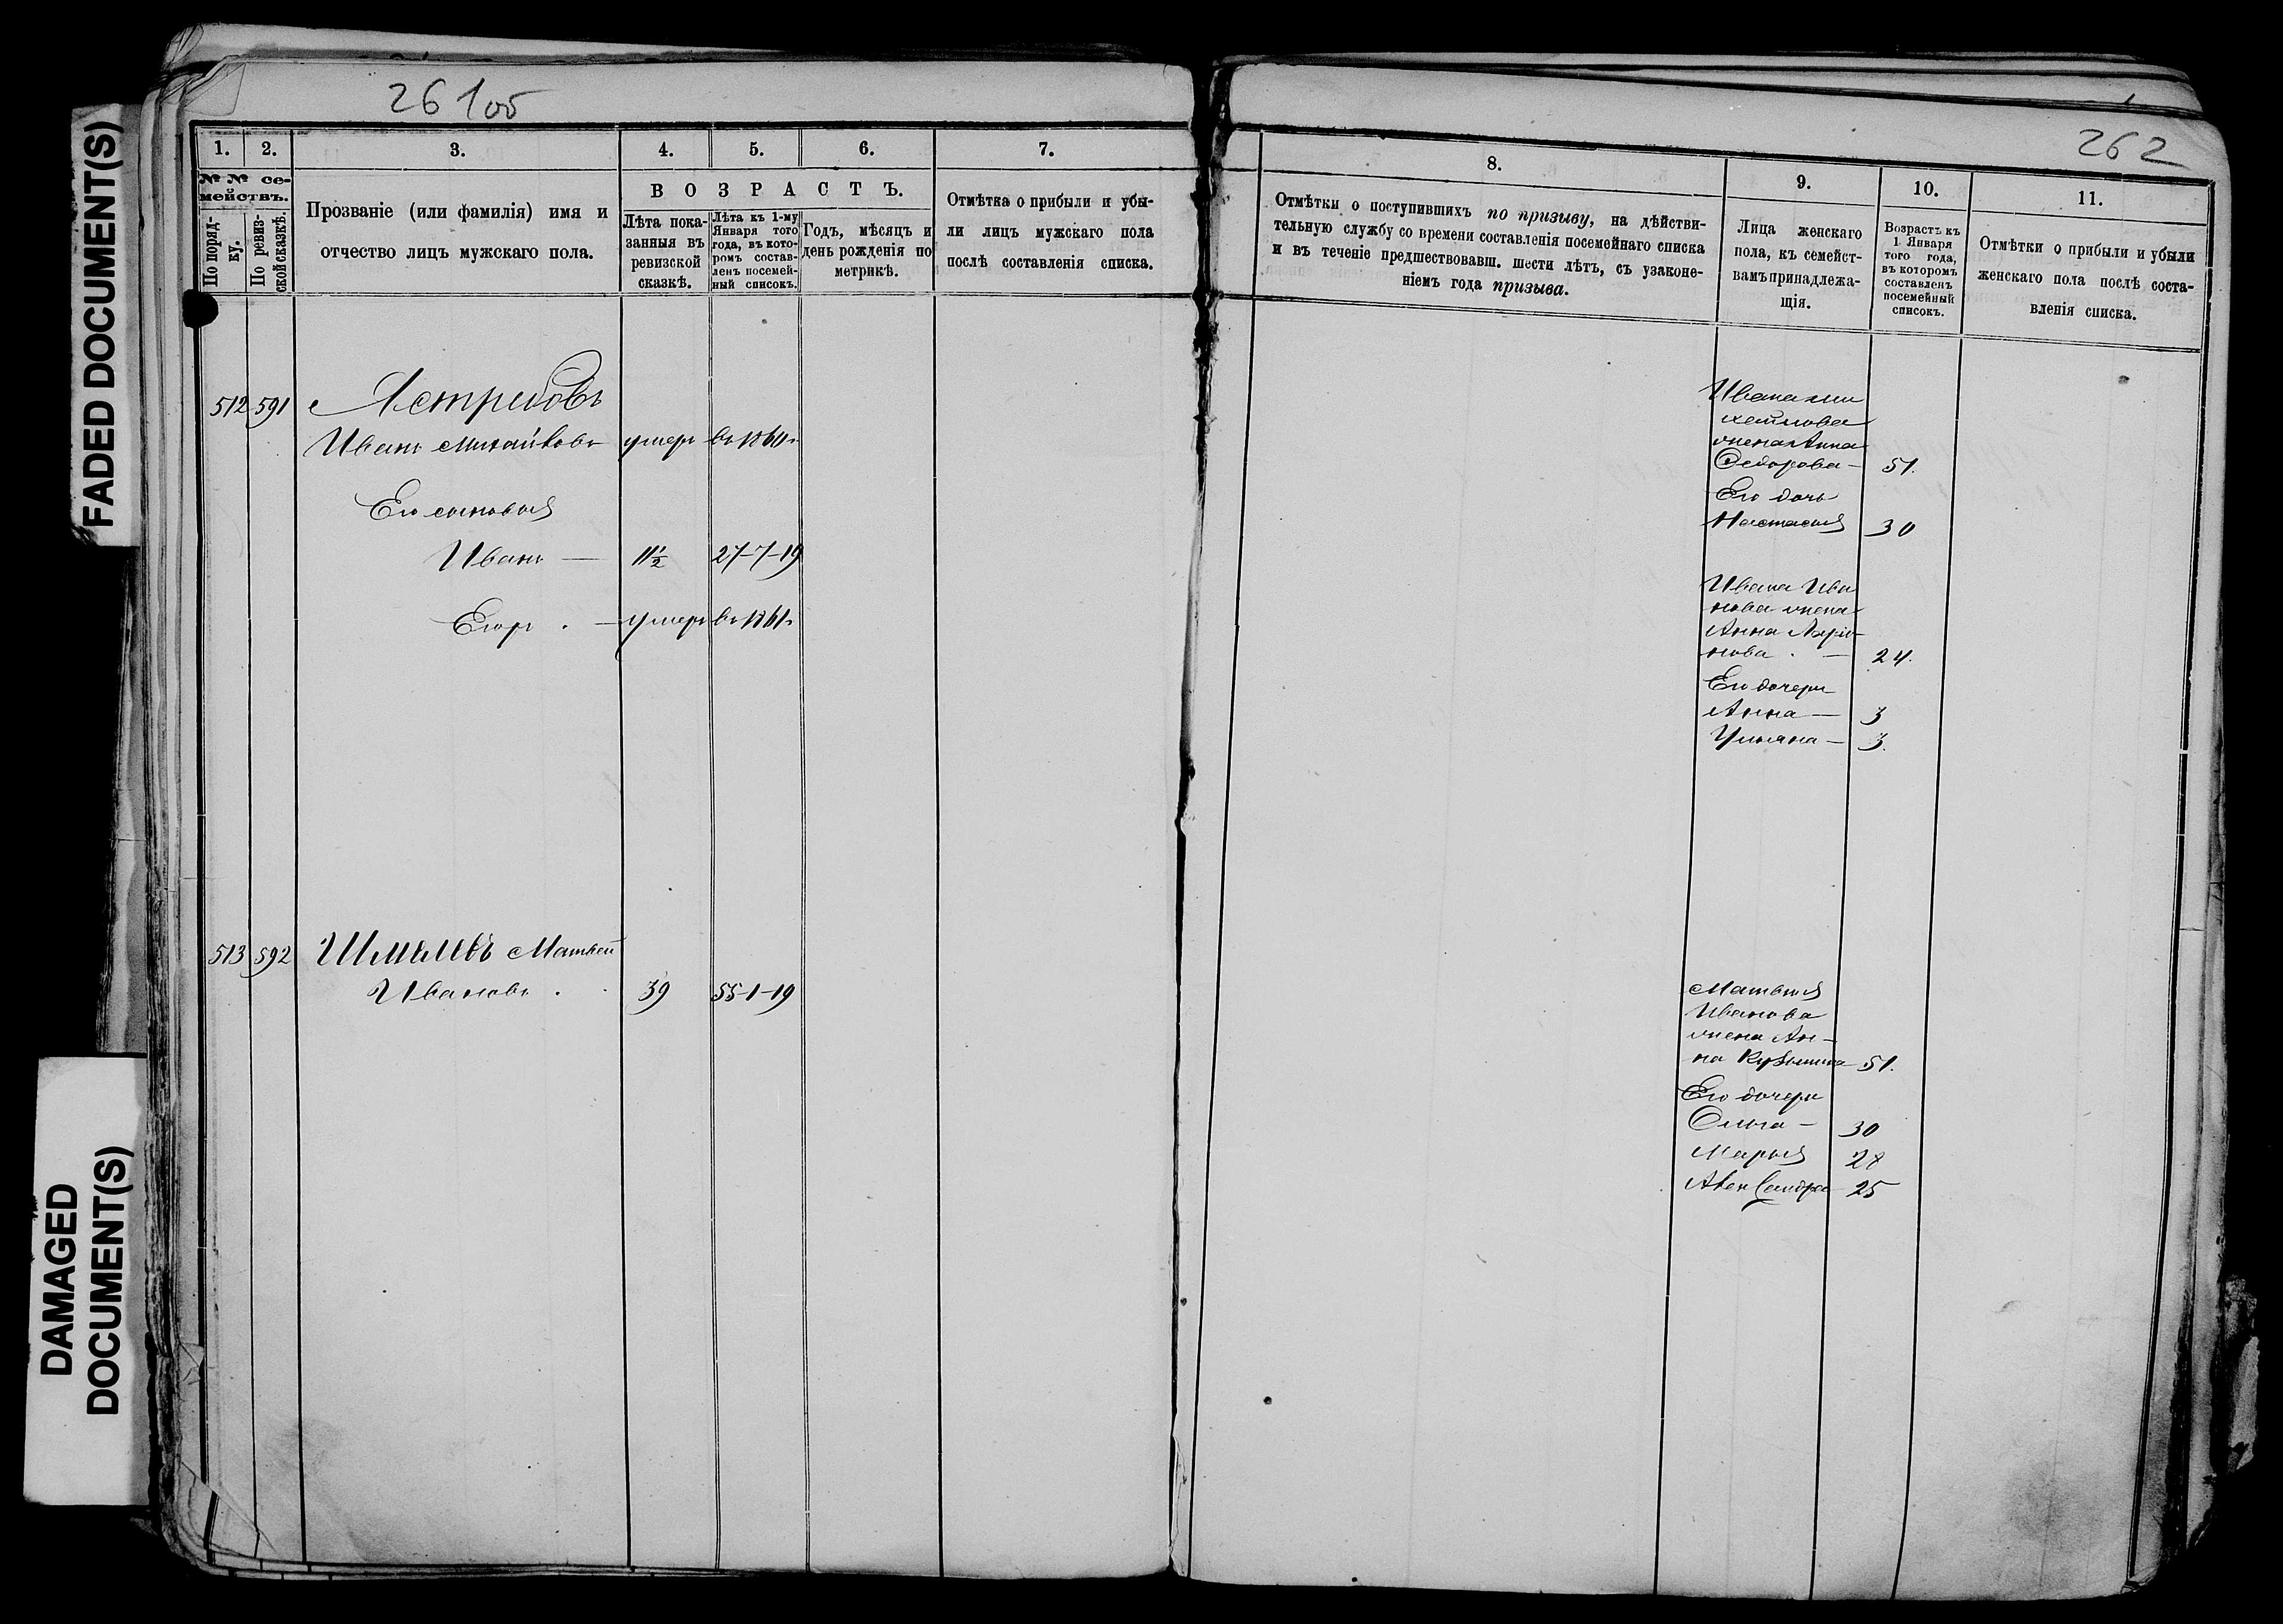 FADED DOCUMENT(S)
DAMAGED
DOCUMENT(S)
261об
1.
2.
3.
4.
5.
6.
7.
№ № се-
мействъ.
По поряд-
ку.
По ревиз-
ской сказкѣ.
Прозваніе (или фамилія) имя и
отчество лицъ мужскаго пола.
ВОЗРАСТЪ.
Лѣта пока-
занныя въ
ревизской
сказкѣ.
Лѣта къ 1-му
Января того
года, въ кото-
ромъ состав-
ленъ посемей-
ный списокъ.
Годъ, мѣсяцъ и
день рожденія по
метрикѣ.
Отмѣтка о прибыли и убы-
ли лицъ мужскаго пола
послѣ составленія списка.
512 591 Ястребовъ
Иванъ Михайловъ умеръ въ 1860г
Его сыновья
Иванъ — 11½ 27-7-19
Егоръ — умеръ въ 1861г
513 592 Шмелевъ Матвей
Ивановъ 39 55-1-19
262
8.
9.
10.
11.
Отмѣтки о поступившихъ по призыву, на дѣйстви-
тельную службу со времени составленія посемейнаго списка
и въ теченіе предшествовавш. шести лѣтъ, съ узаконе-
ніемъ года призыва.
Лица женскаго
пола, къ семейст-
вамъ принадлежа-
щія.
Возрастъ къ
1 Января
того года,
въ которомъ
составленъ
посемейный
списокъ.
Отмѣтки о прибыли и убыли
женскаго пола послѣ соста-
вленія списка.
Ивана Ми
хайлова
жена Анна
Федорова — 51.
Его дочь
Настасья 30
Ивана Ива
нова жена
Анна Ларіо-
нова — 24.
Его дочери
Анна — 3
Ульяна — 3.
Матвея
Иванова
жена Ан-
на Кузьмина 51.
Его дочери
Ольга — 30
Марья 28
Александра 25